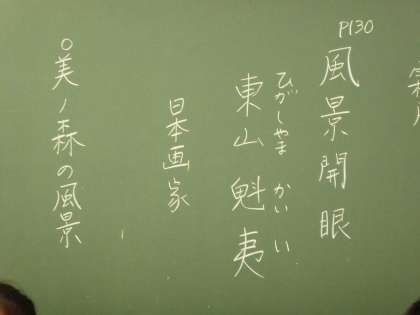 P130
風景開眼
ひがしやま かいい
東山魁夷
日本画家
○美ノ森の風景